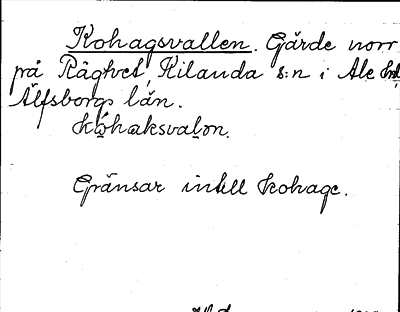 Kohagsvallen. Gärde norr
på Räghet, Kilanda s:n i Ale hd
Älfsborgs län.
kohaksvalon.
Gränsar intill kohage.